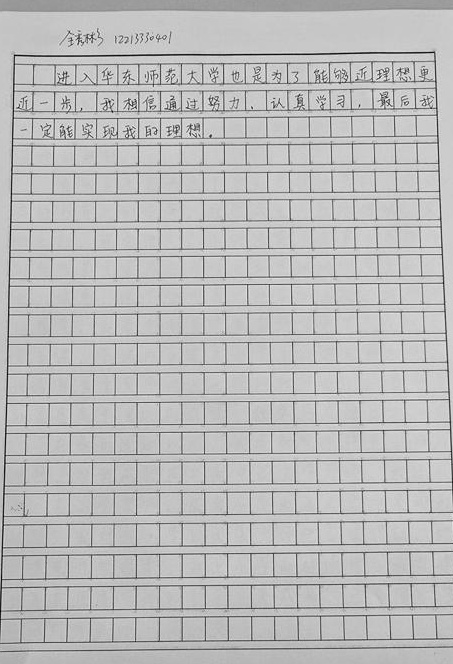 金秀彬 12213330401
进入华东师范大学也是为了能够近理想更
近一步，我相信通过努力、认真学习，最后我
一定能实现我的理想。